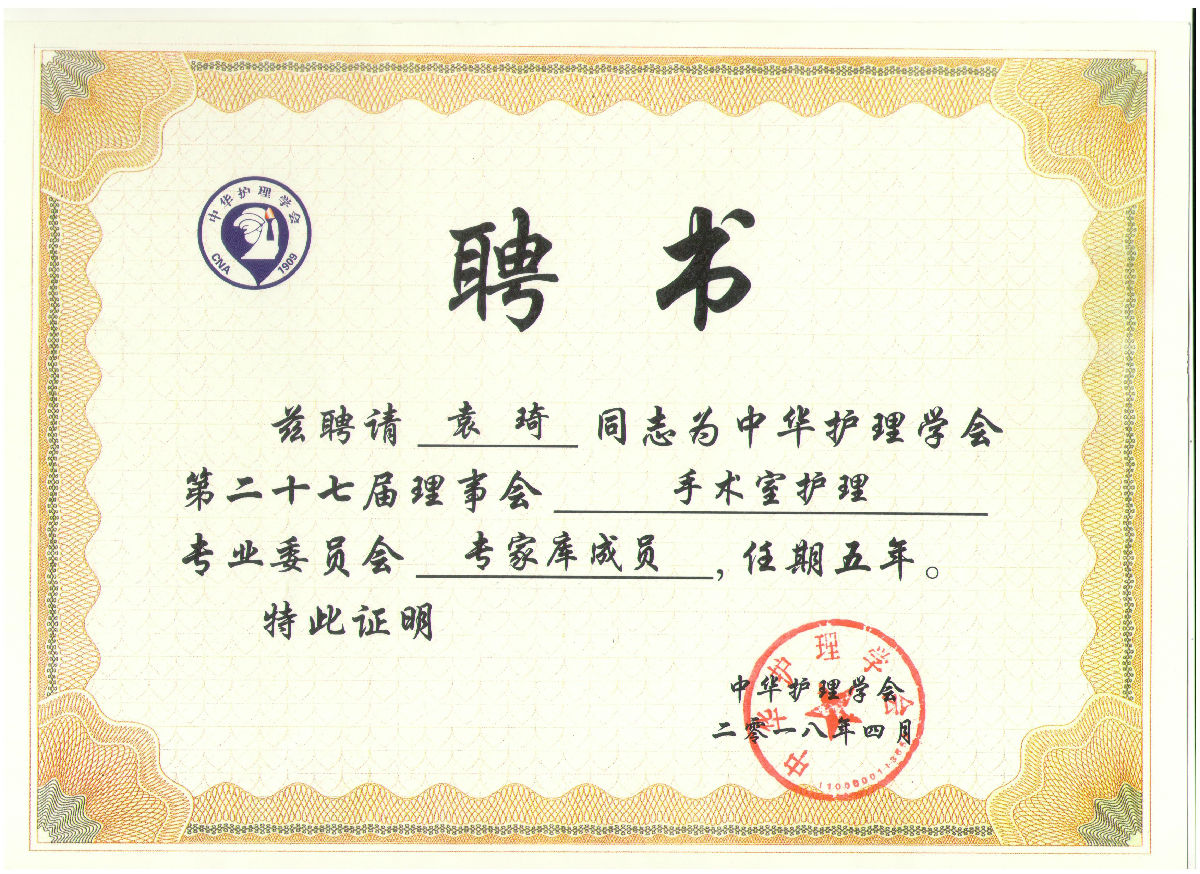 中华护理学会
CNA 1909
聘书
兹聘请 袁琦 同志为中华护理学会
第二十七届理事会 手术室护理
专业委员会 专家库成员,任期五年。
特此证明
中华护理学会
二零一八年四月
中华护理学会